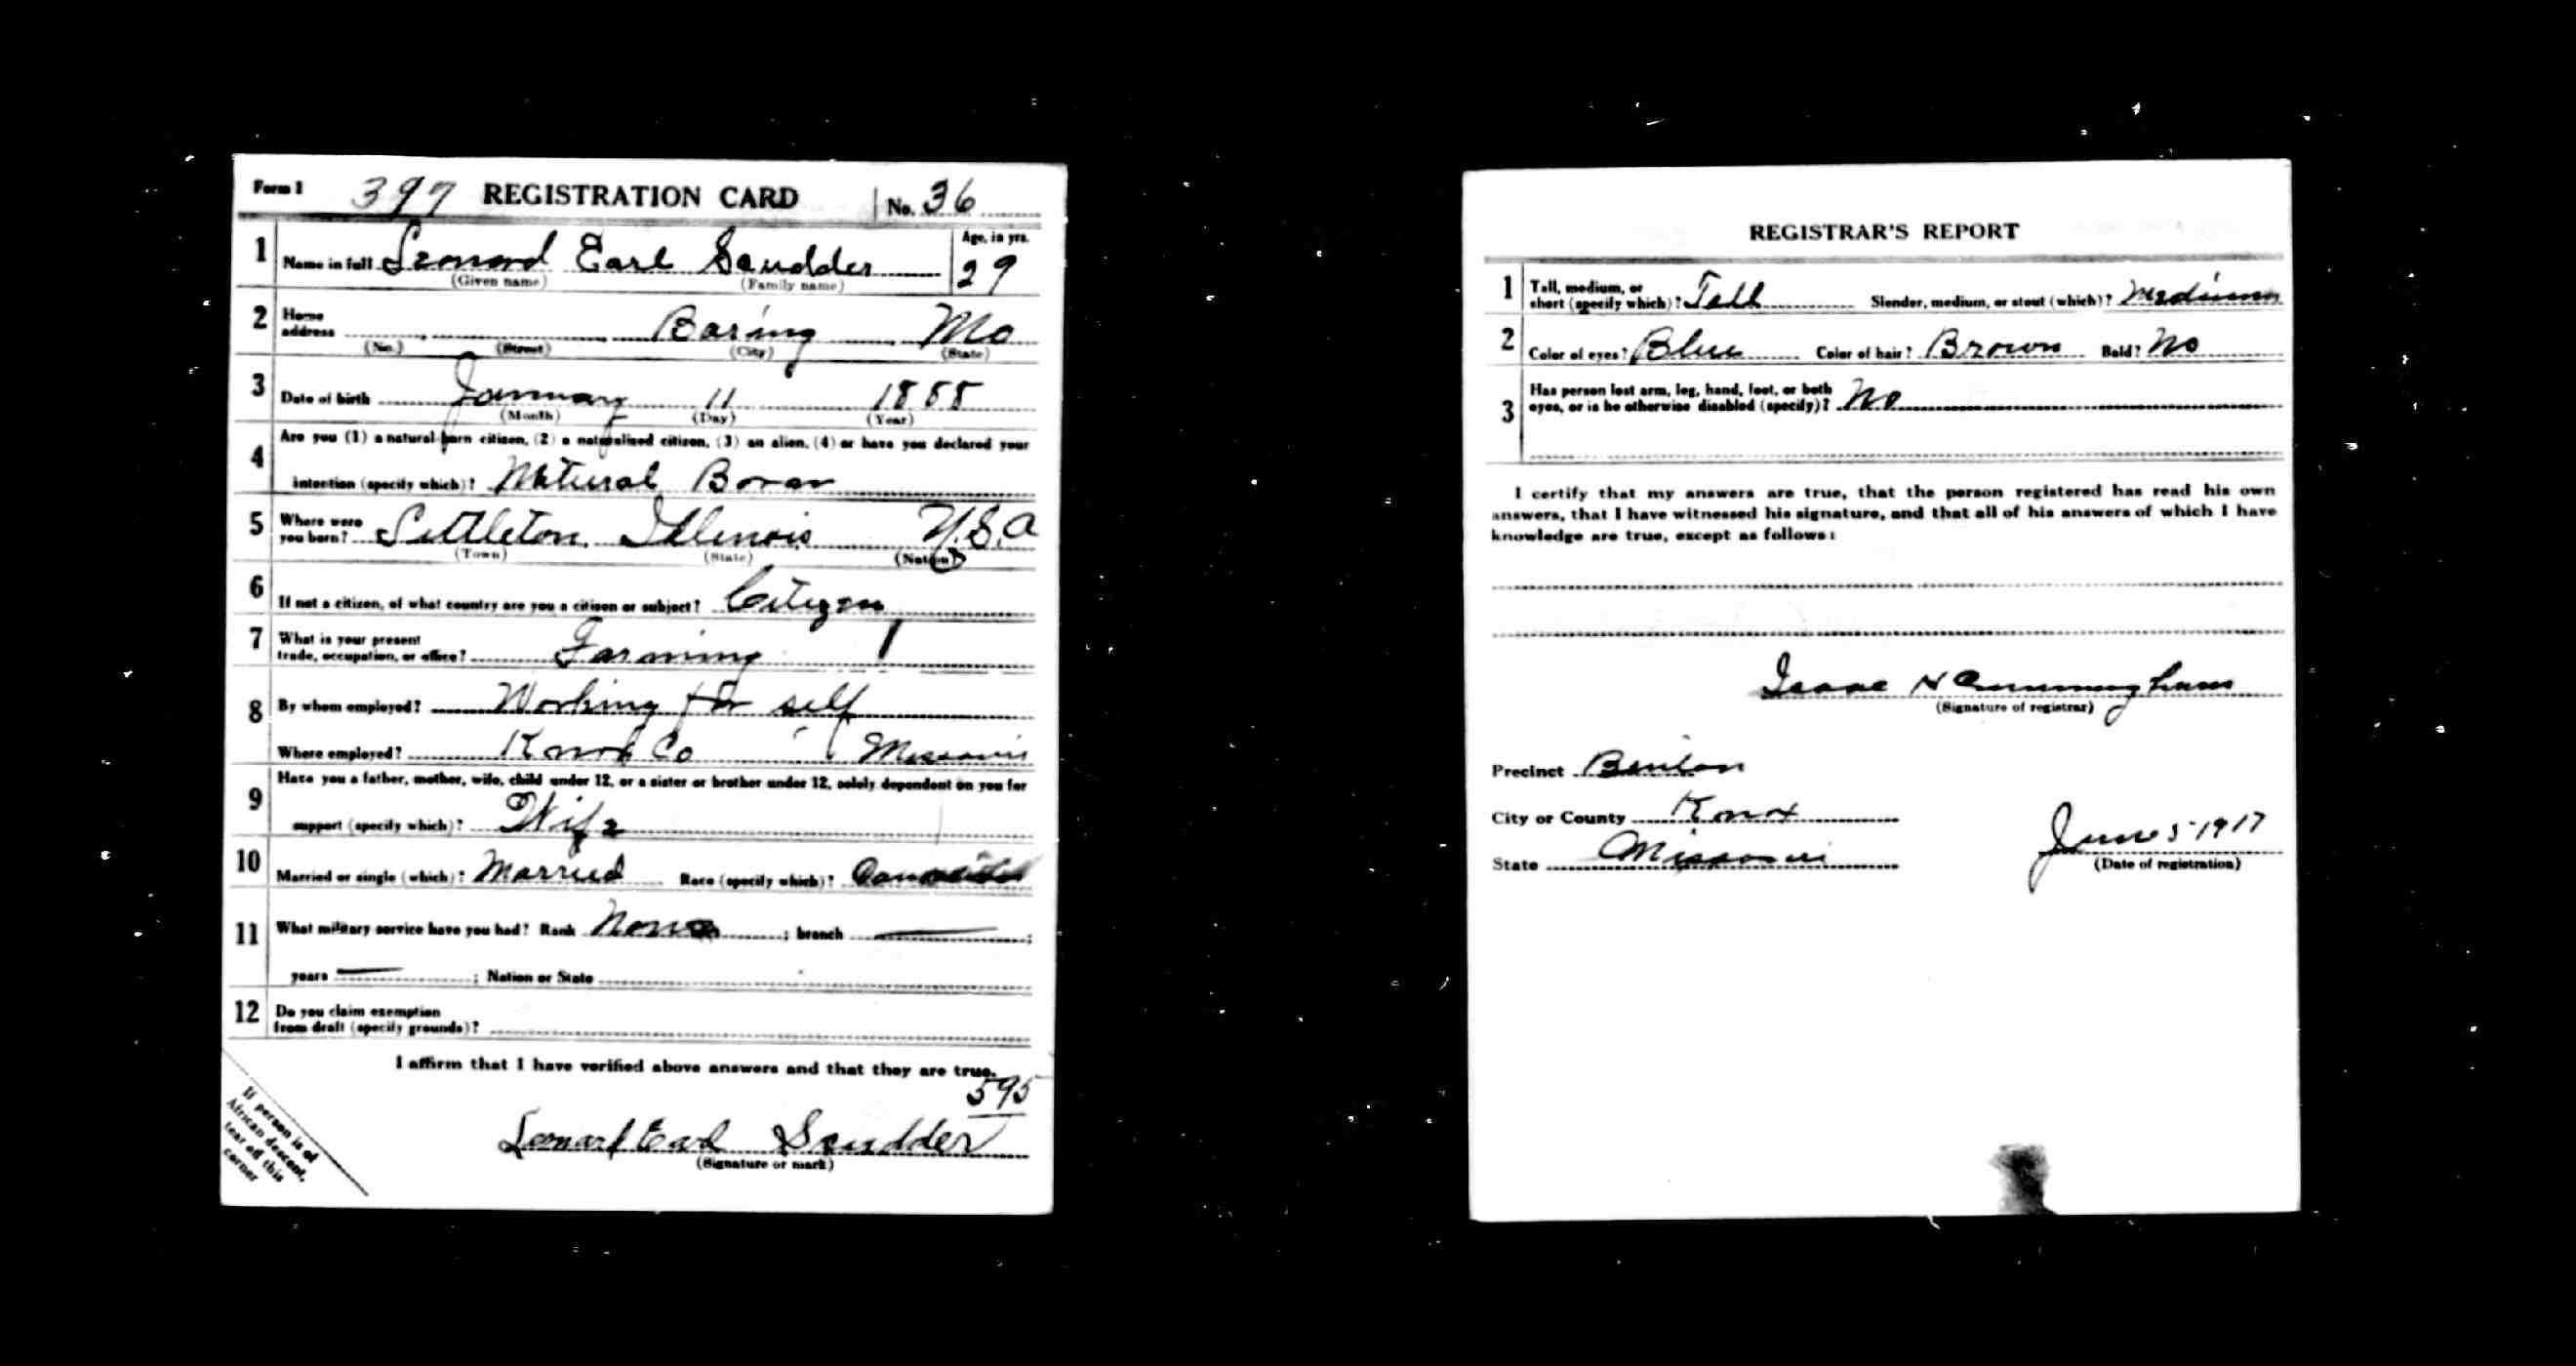 Form 1 397 REGISTRATION CARD No. 36
1 Name in full Leonard Earl Scudder Age, in yrs. 29
(Given name) (Family name)
2 Home address Baring, Mo
(No.) (Street) (City) (State)
3 Date of birth January 11 1888
(Month) (Day) (Year)
4 Are you (1) a natural-born citizen, (2) a naturalized citizen, (3) an alien, (4) or have you declared your
intention (specify which)? Natural Born
5 Where were you born? Littleton, Illinois U.S.A
(Town) (State) (Nation)
6 If not a citizen, of what country are you a citizen or subject? Citizen
7 What is your present
trade, occupation, or office? Farming
8 By whom employed? Working for self
Where employed? Knox Co Missouri
9 Have you a father, mother, wife, child under 12, or a sister or brother under 12, solely dependent on you for
support (specify which)? Wife
10 Married or single (which)? Married Race (specify which)?
11 What military service have you had? Rank None ; branch ;
years ; Nation or State
12 Do you claim exemption
from draft (specify grounds)?
I affirm that I have verified above answers and that they are true.
595
Leonard Earl Scudder
(Signature or mark)
If person is of
African descent,
tear off this
corner
REGISTRAR'S REPORT
1 Tall, medium, or
short (specify which)? Tall Slender, medium, or stout (which)? Medium
2 Color of eyes? Blue Color of hair? Brown Bald? No
3 Has person lost arm, leg, hand, foot, or both
eyes, or is he otherwise disabled (specify)? No
I certify that my answers are true, that the person registered has read his own
answers, that I have witnessed his signature, and that all of his answers of which I have
knowledge are true, except as follows:
Isaac N Cunningham
(Signature of registrar)
Precinct Benton
City or County Knox
State Missouri
June 5-1917
(Date of registration)